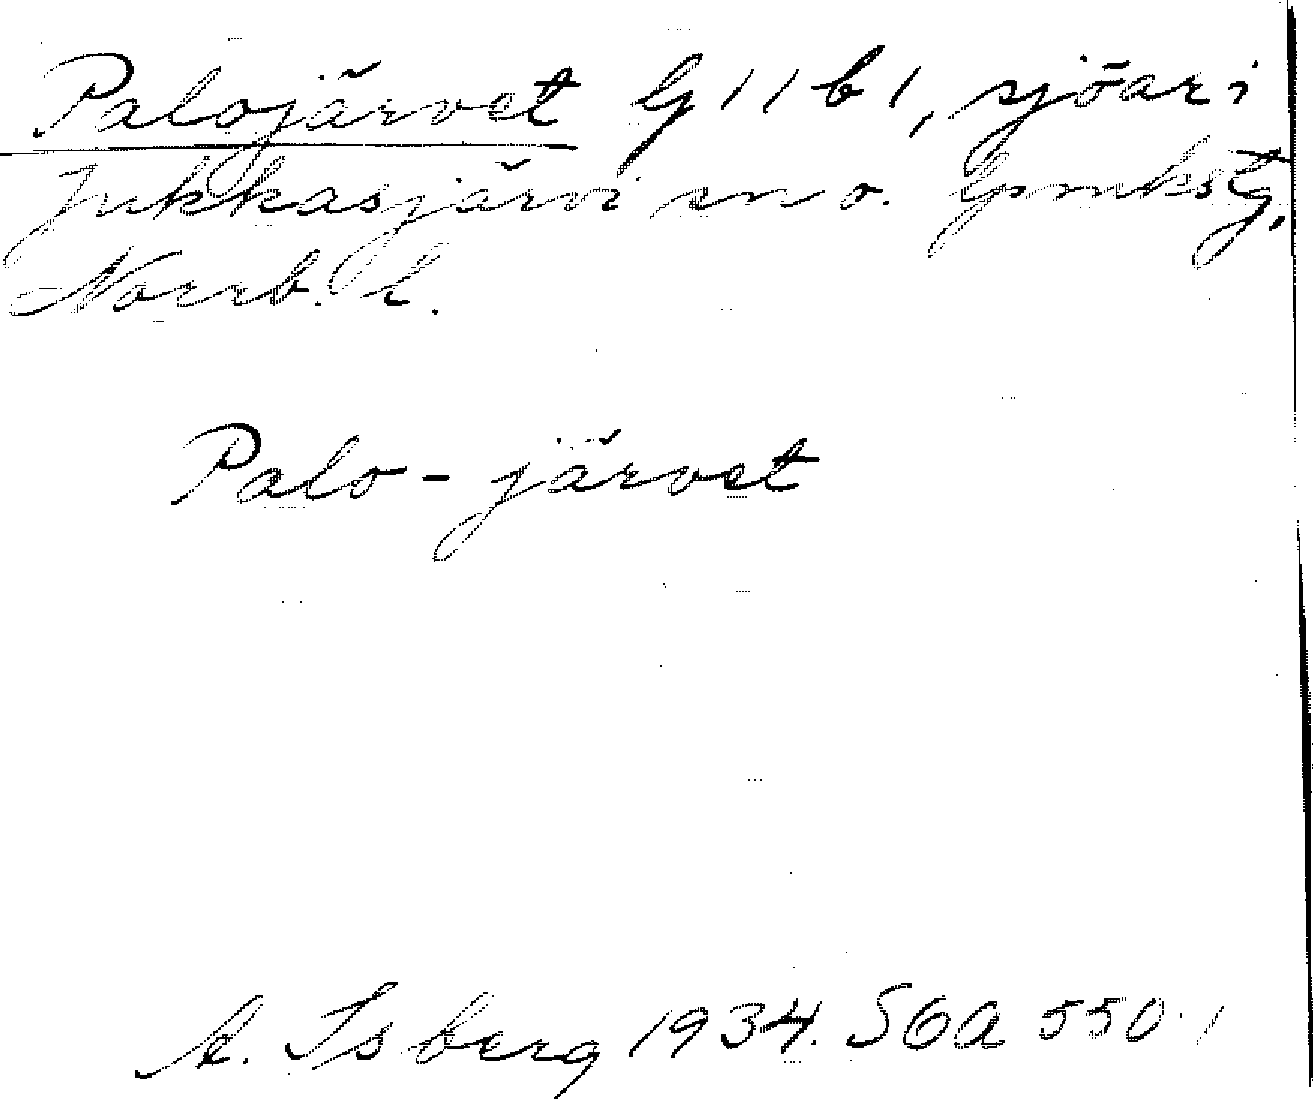 Palojärvet G 11 b 1, sjöar i
Jukkasjärvi sn o. Gmlkstg,
Norrb. l.
Palo-järvet
A. Isberg 1934. SOA 550:1